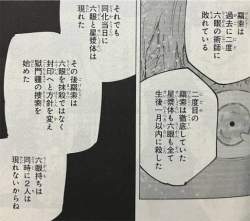 羂索は
過去に二度
六眼の術師に
敗れている
二度目の
羂索は徹底していた
星漿体も六眼も全て
生後一月以内に殺した
それでも
同化当日に
六眼と星漿体は
現れた
その後羂索は
六眼を抹殺ではなく
封印へと方針を変え
獄門疆の捜索を
始めた
六眼持ちは
同時に2人は
現れないからね